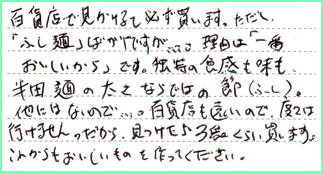 百貨店で見かけると必ず買います。ただし、
「ふし麺」ばかりですが…。理由は「一番
おいしいから」です。独特の食感も味も、
半田麺の太さならではの節（ふし）。
他にはないので…。百貨店も遠いので、度々は
行けません。だから、見つけたら3袋くらい買います。
これからもおいしいものを作ってください。